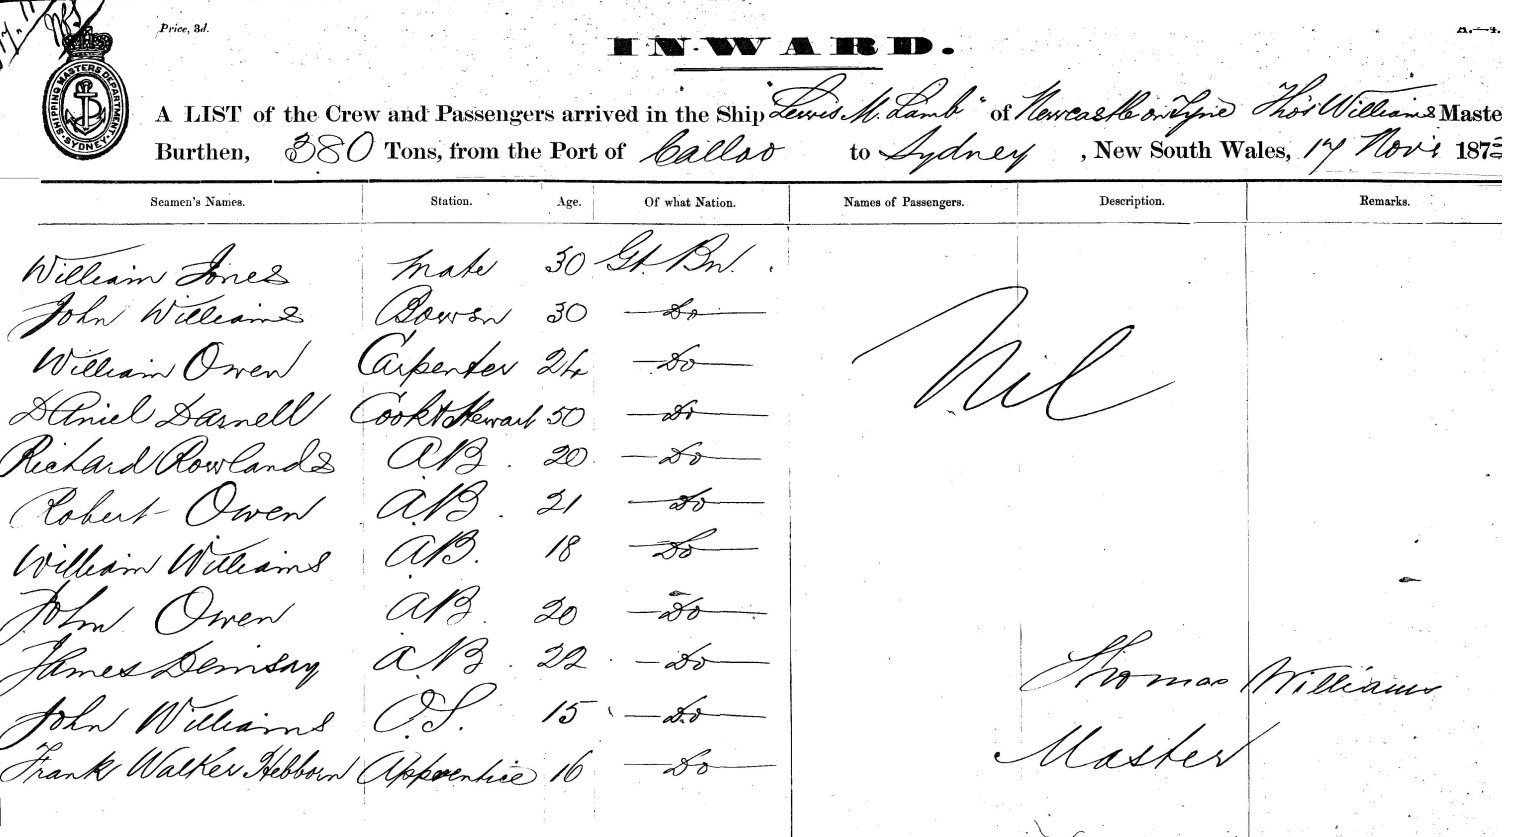 Price, 3d.
INWARD.
SHIPPING MASTERS DEPARTMENT. SYDNEY.
A LIST of the Crew and Passengers arrived in the Ship "Lewis M. Lamb" of Newcastle on Tyne Thos Williams Maste
Burthen, 380 Tons, from the Port of Callao to Sydney, New South Wales, 17 Novr 187
Seamen's Names. Station. Age. Of what Nation. Names of Passengers. Description. Remarks.
William Jones Mate 30 Gt. Bn.
John Williams Bowsn 30 Do
William Owen Carpenter 24 Do
Nil
Daniel Darnell Cook & Steward 50 Do
Richard Rowlands AB. 20 Do
Robert Owen AB. 21 Do
William Williams AB. 18 Do
John Owen AB. 20 Do
James AB. 22 Do
Thomas Williams
John Williams O.S. 15 Do
Master
Frank Walker Hebborn Apprentice 16 Do